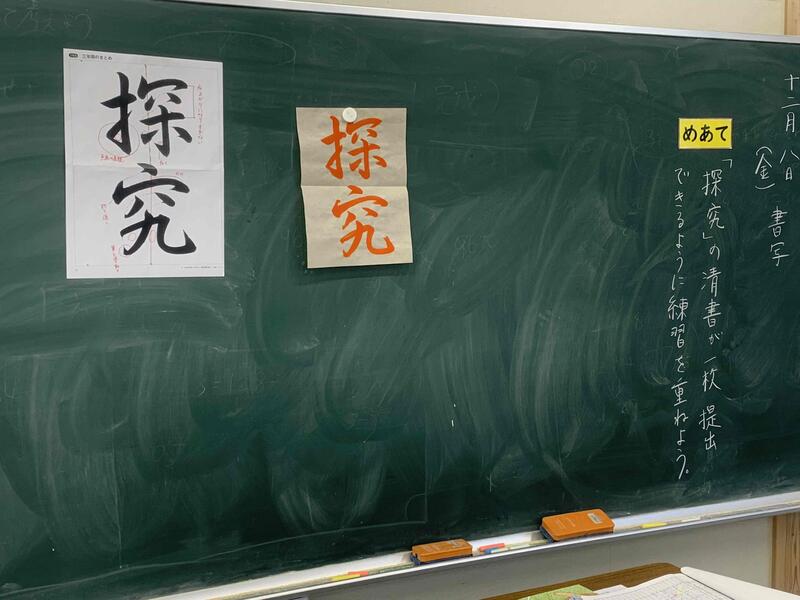 十二月八日(金) 書写
めあて
「探究」の清書が一枚提出
できるように練習を重ねよう。
探究
三年間のまとめ
探究